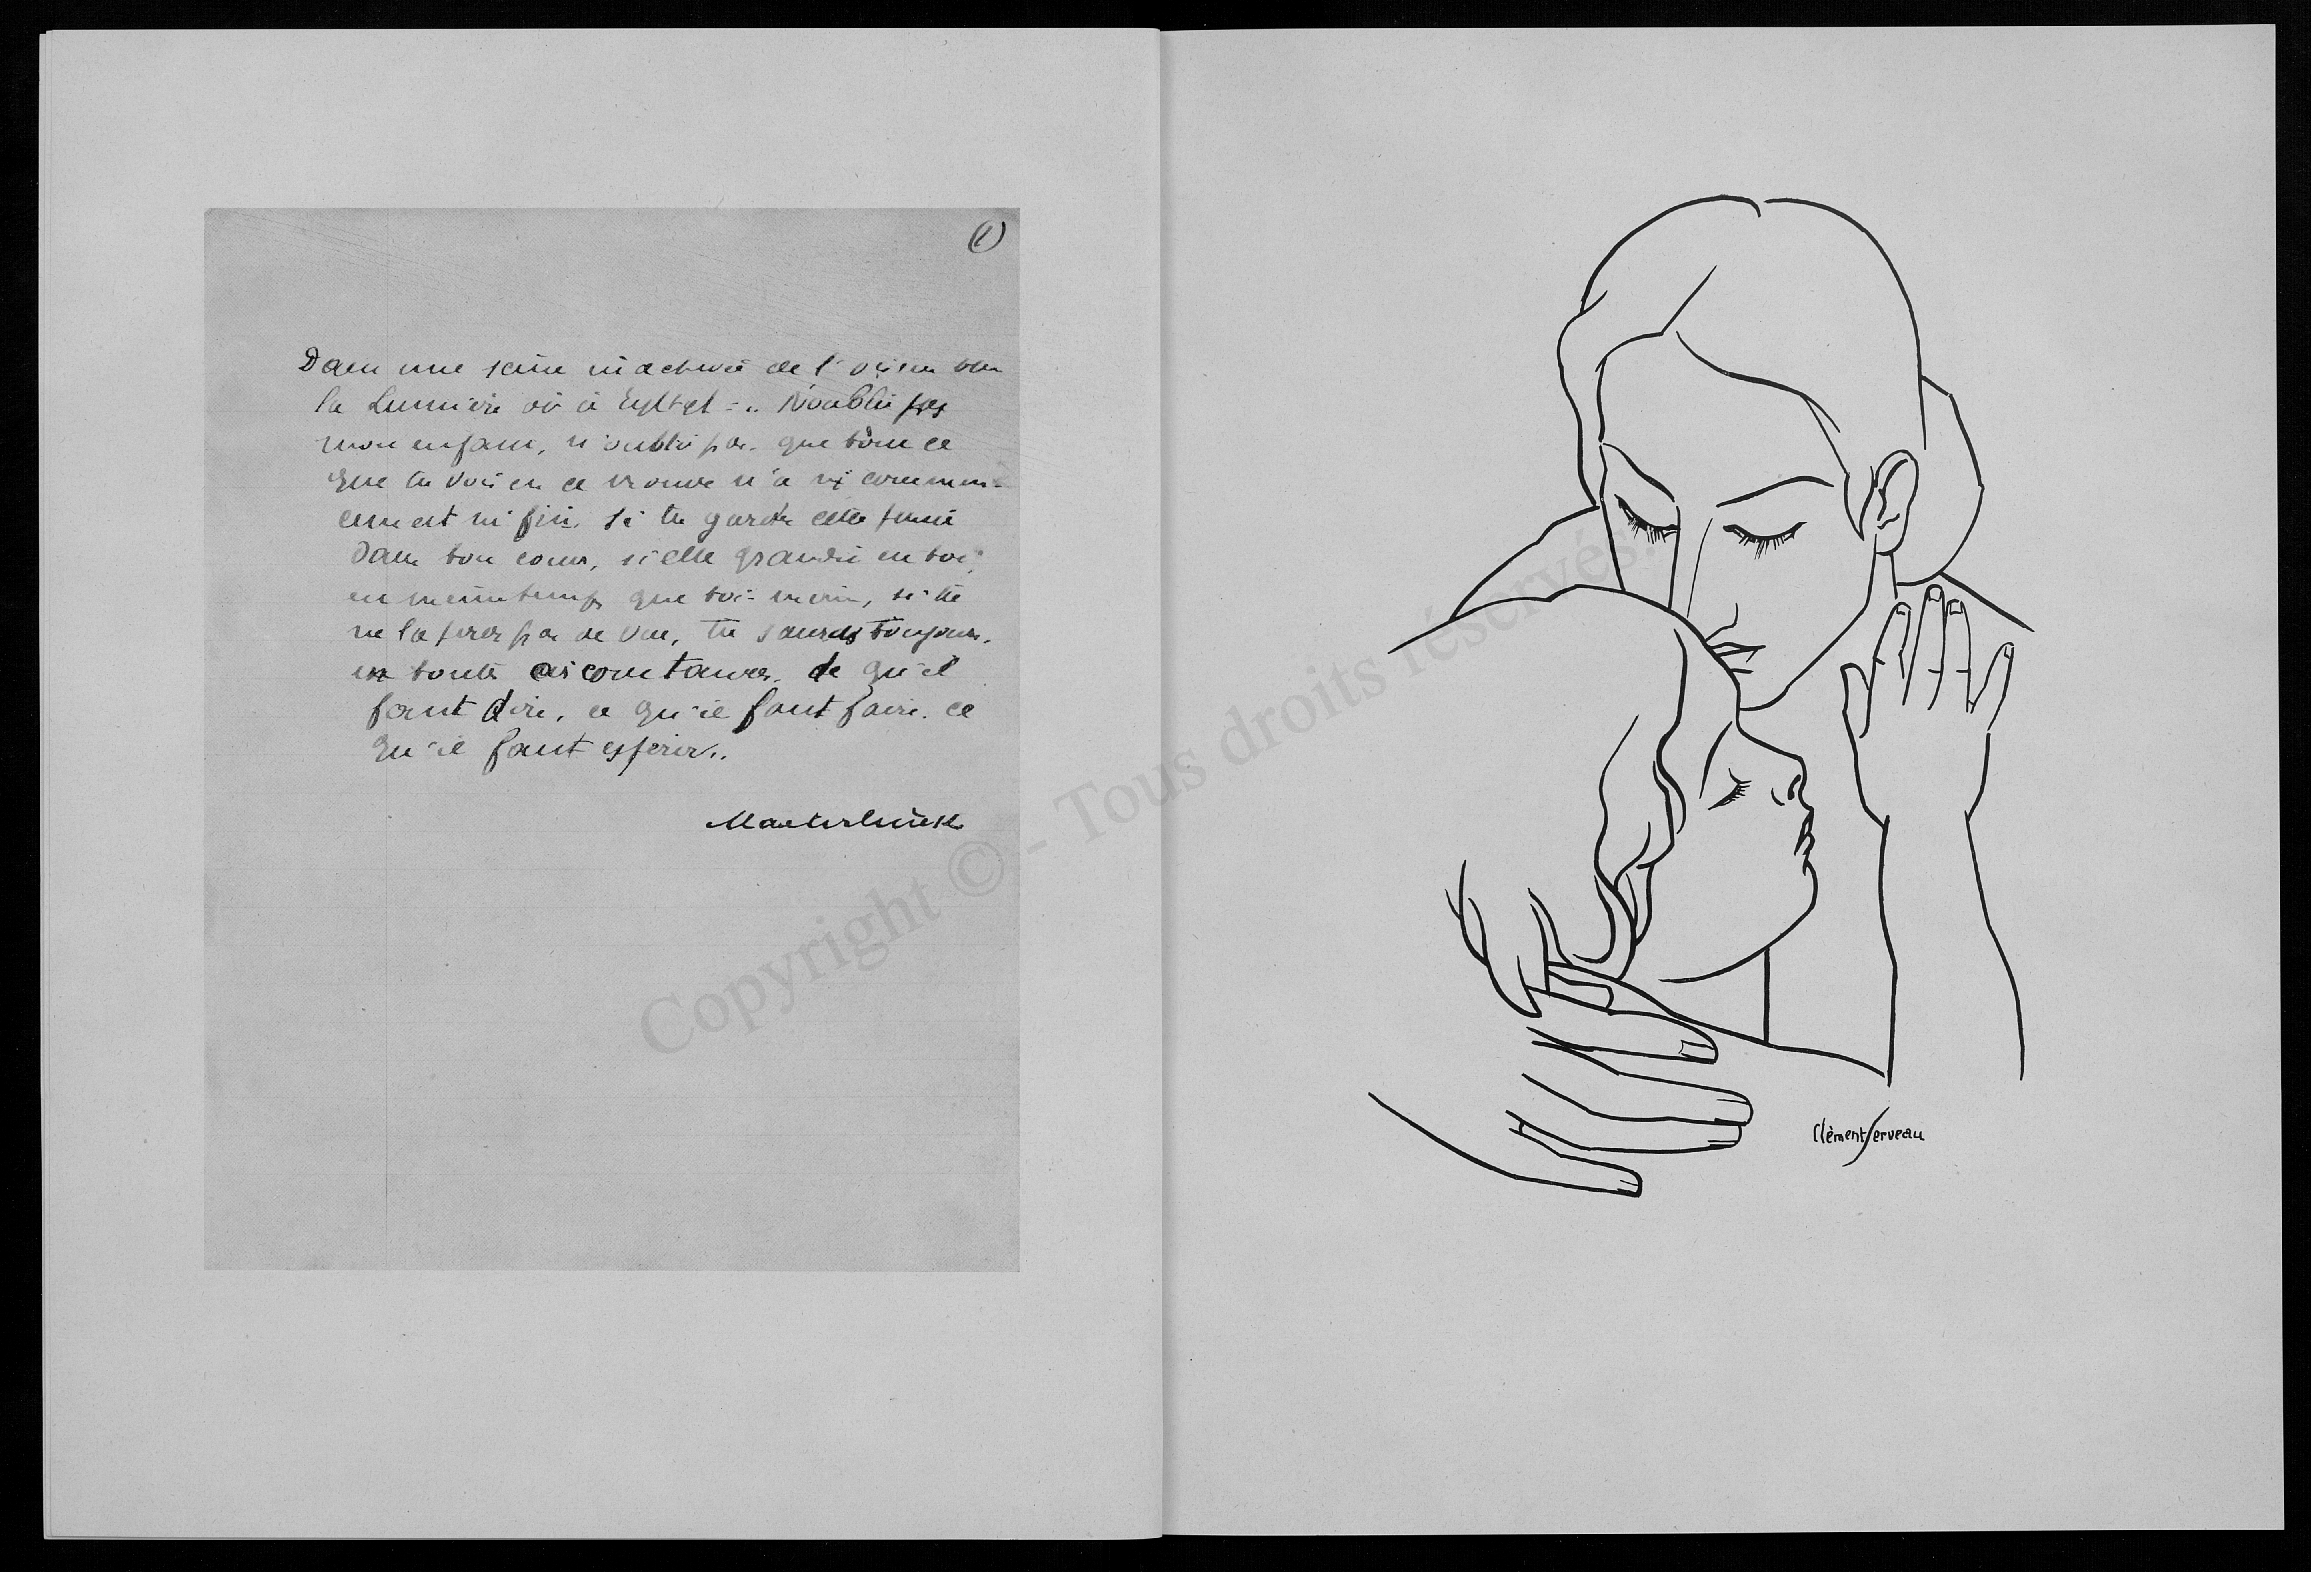 (1)
Dans une scène inachevée de l'oiseau bleu
la Lumière dit à Tyltyl : « N'oublie pas
mon enfant, n'oublie pas que tout ce
que tu vois en ce monde n'a ni commen-
cement ni fin. Si tu gardes cette pensée
dans ton cœur, si elle grandit en toi,
en même temps que toi-même, si tu
ne la perds pas de vue, tu sauras toujours,
en toutes circonstances, ce qu'il
faut dire, ce qu'il faut faire, ce
qu'il faut espérer..
Maeterlinck
Clément Serveau
Copyright © - Tous droits réservés.